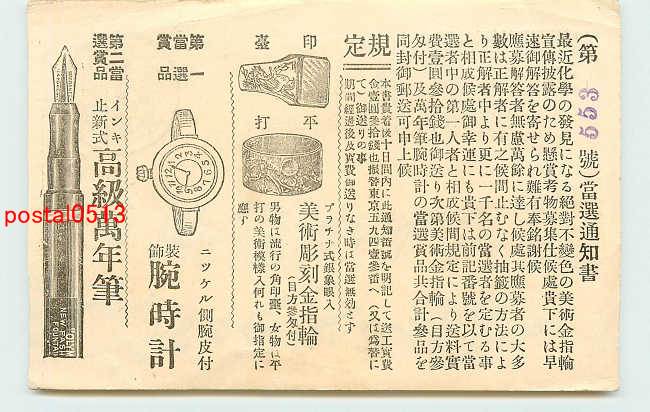 (第 553 號)當選通知書
最近化學の發見になる絕對不變色の美術金指輪
宣傳披露のため懸賞考物募集仕候處貴下には早
速御解答を寄せられ難有奉銘謝候
應募解答者無慮萬餘に達し候處其應募者の大多
數は正解者に有之候間止むなく抽籤の方法によ
り正解者中より更に一千名の當選者を定むる事
と相成候處御幸運にも貴下は前記番號を以て當
選者中の第一人者と相成候間規定により送料實
費壹圓參拾錢也御送り次第美術金指輪(目方參
匁付)及萬年筆腕時計の當選賞品共合計參品を
同封御郵送可申上候
規定
本書到着後十日間内に此通知番號を明記して送工實費
金壹圓參拾錢也振替東京五九四壹參番へ(又は爲替に
て)御送りの事
期間經過後及實費御送りなき時は當選無効とす
印臺
平打
プラチナ式銀象眼入
美術彫刻金指輪
(目方參匁付)
男物は流行の角印臺、女物は平
打の美術模樣入何れも御指定に
應ず
第一當選賞品
ニツケル側腕皮付
裝飾腕時計
第二當選賞品
インキ止新式高級萬年筆
NEW FASH
FOUNTAI
postal0513